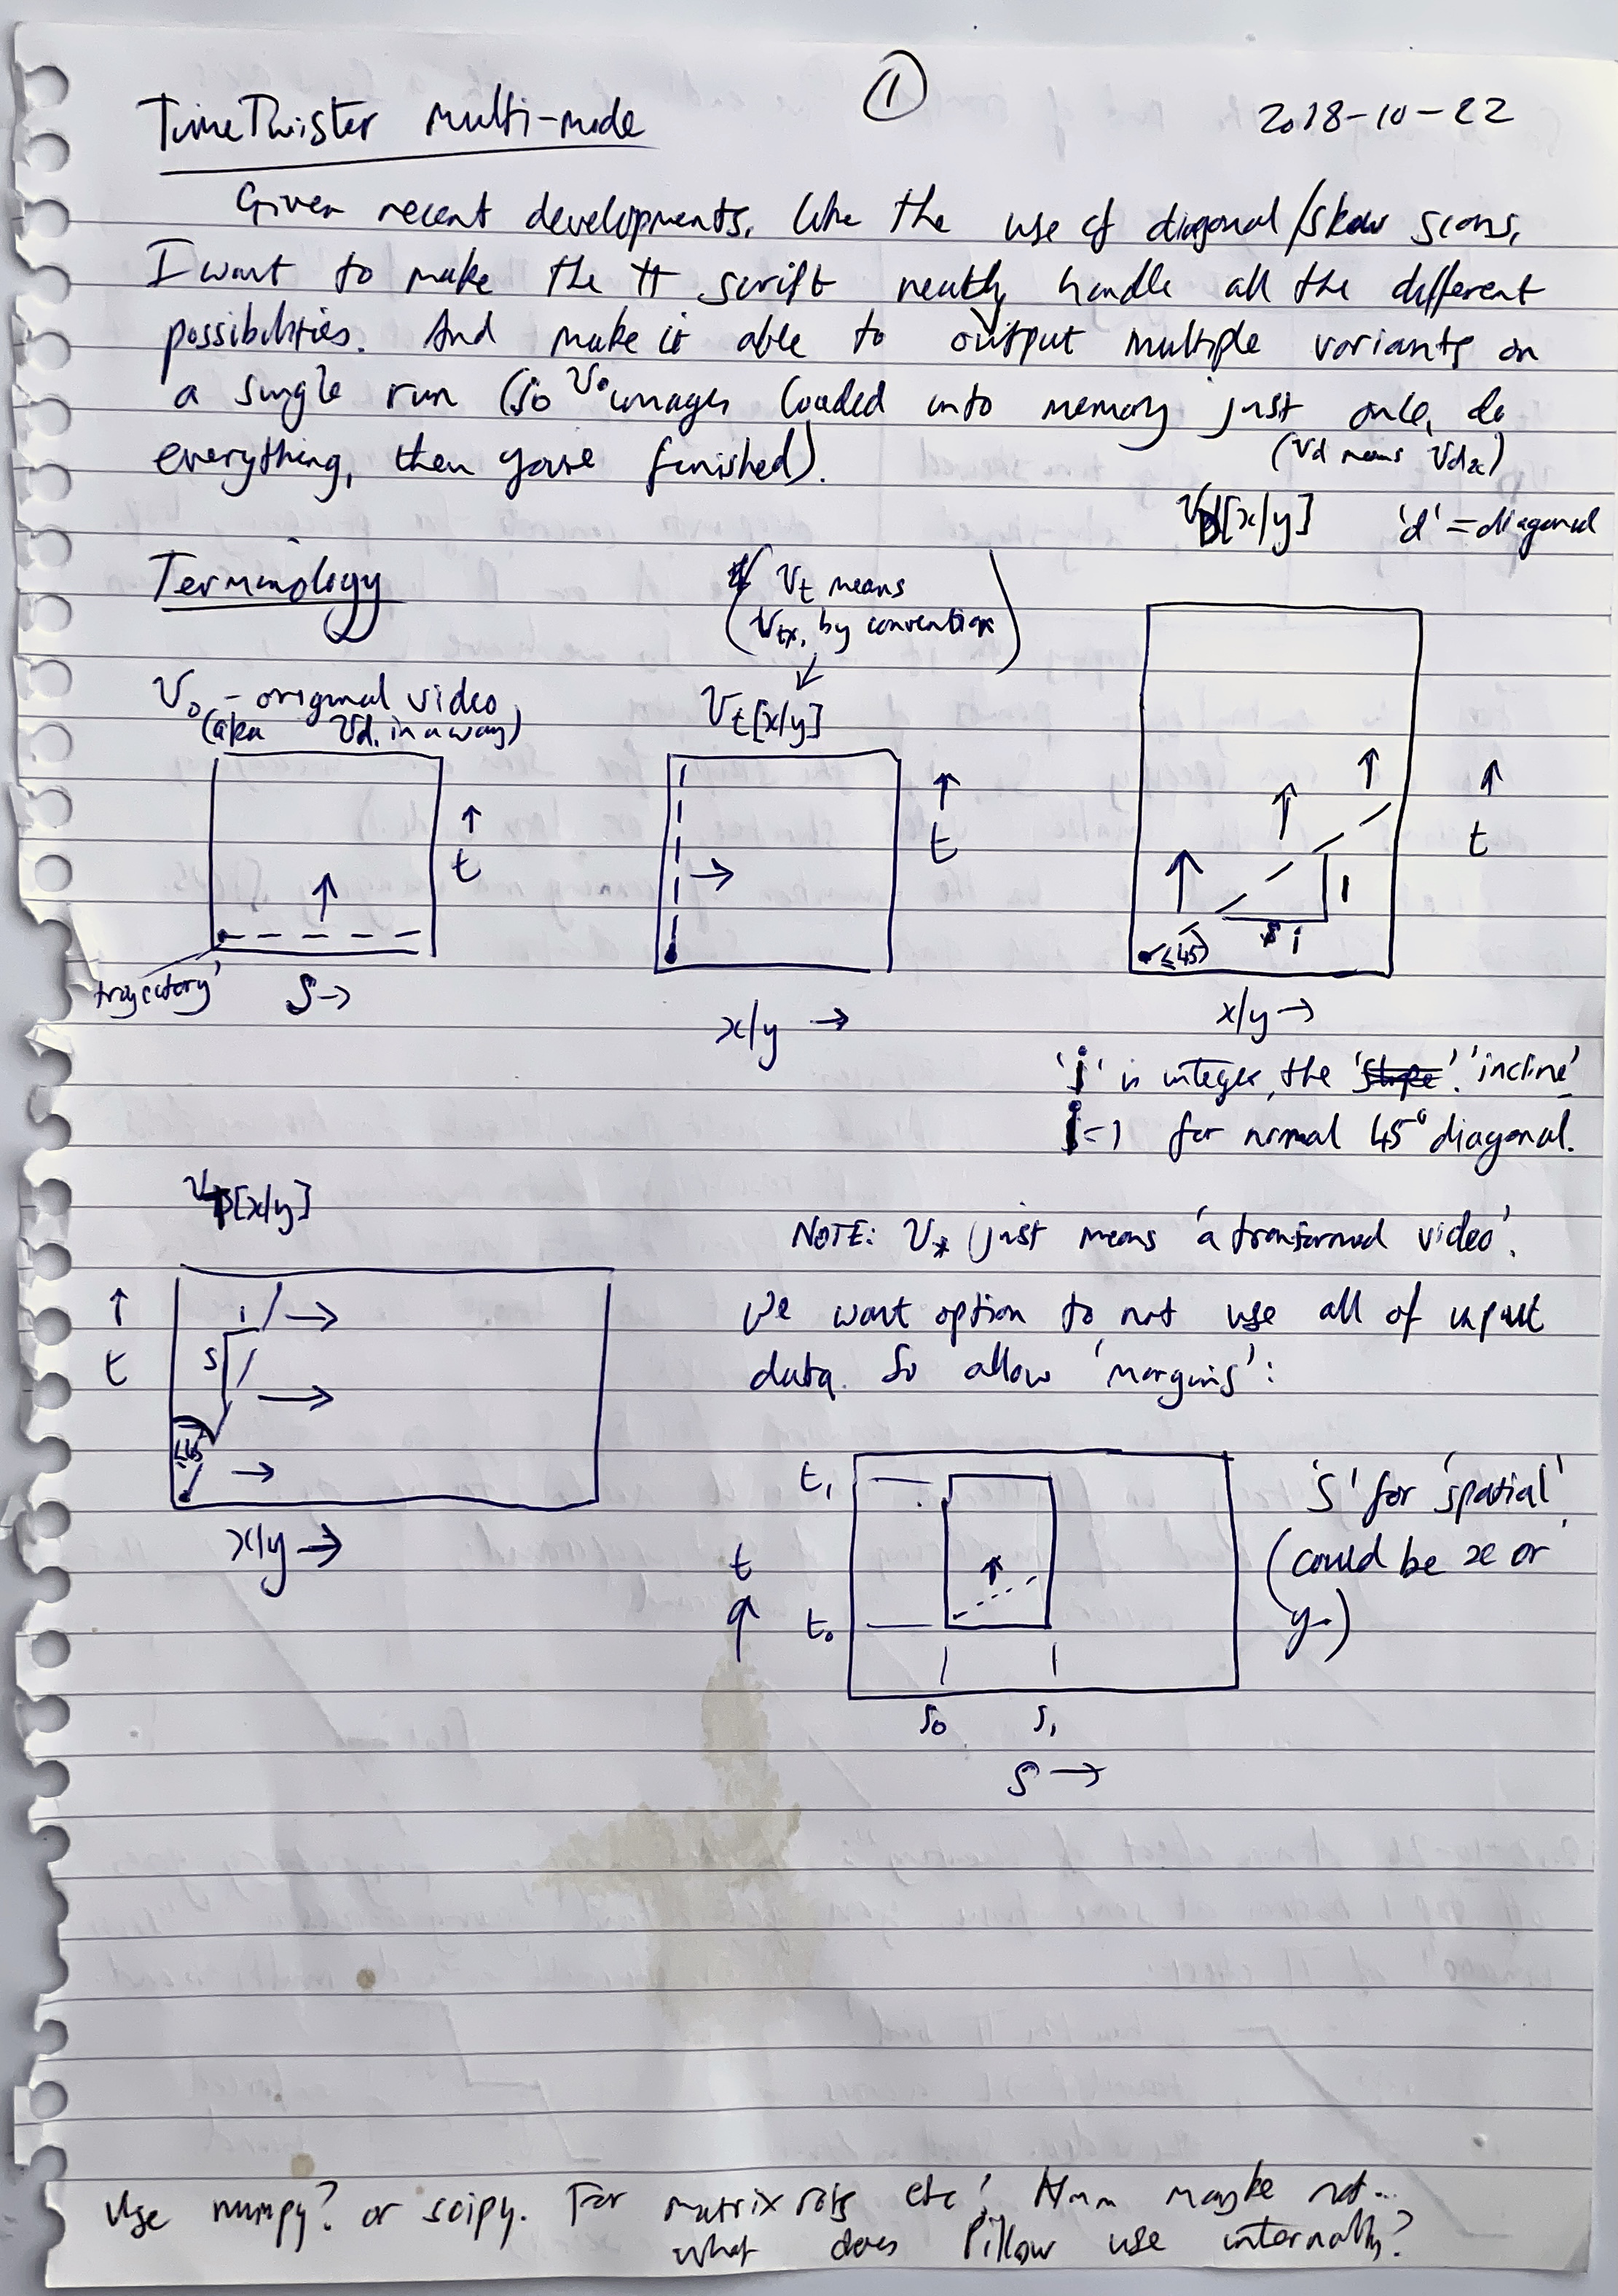 ①
TimeTwister multi-mode
2018-10-22
Given recent developments, like the use of diagonal/skew scans,
I want to make the tt script neatly handle all the different
possibilities. And make it able to output multiple variants on
a single run (so V₀ images loaded into memory just once, do
everything, then you're finished).
(Vd means Vdx)
VD[x/y] 'd' = diagonal
Terminology
(Vt means
Vtx, by convention)
V₀ - original video
(aka Vd, in a way)
Vt[x/y]
↑
t
trajectory
S→
↑
t
x/y →
↑
t
1
i
≤45
x/y →
'i' is integer, the 'slope'. 'incline'
i=1 for normal 45° diagonal.
[x/y]
↑
t
i
s
≤45
x/y →
NOTE: V* just means 'a transformed video'.
We want option to not use all of input
data. So allow 'margins':
t₁
t₀
t
↑
s₀ s₁
S →
'S' for 'spatial'
(could be x or
y.)
Use numpy? or scipy. For matrix rots etc! Hmm maybe not...
what does Pillow use internally?